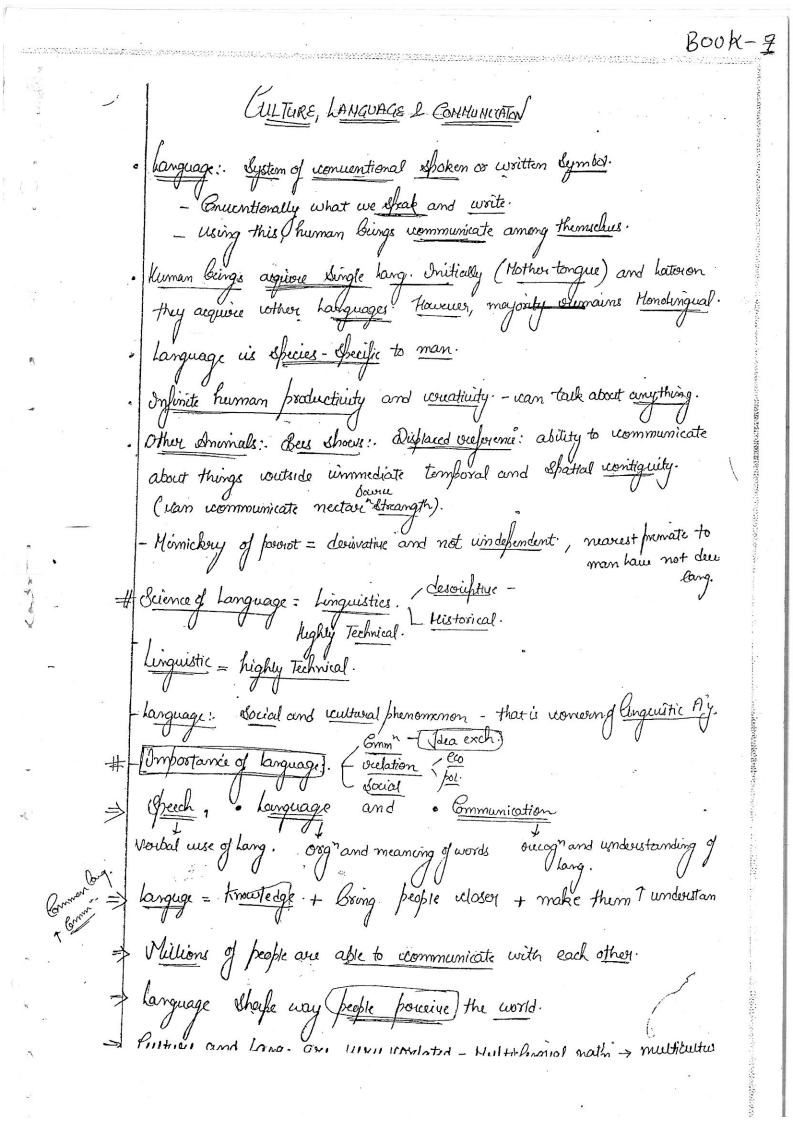 BOOK-9
CULTURE, LANGUAGE & COMMUNICATON
• Language:. System of conventional spoken or written symbol.
- Conventionally what we speak and write.
- Using this, human beings communicate among themselves.
• Human beings acquire single lang. Initially (Mother tongue) and later on
they acquire other languages. However, majority remains Monolingual.
• Language is species-specific to man.
• Infinite human productivity and creativity. - can talk about anything.
• Other Animals:. Bees shows:. Displaced reference: ability to communicate
about things outside immediate temporal and spatial contiguity.
source
(can communicate nectar strength).
- Mimickery of parrot = derivative and not independent, nearest primate to
man have not dev
lang.
# Science of Language = Linguistics. descriptive -
Historical.
Highly Technical.
Linguistic = highly Technical.
- Language:. Social and cultural phenomenon - that is concern of linguistic A'y.
Commn - Idea exch.
# - Importance of language. relation eco
pol.
social
⇒ Speech, • Language and • Communication
↓ ↓ ↓
Verbal use of Lang. orgn and meaning of words recogn and understanding of
Lang.
Common lang.
↑ Commn
⇒ Languge = Knowledge + Bring people closer + make them ↑ understan
⇒ Millions of people are able to communicate with each other.
⇒ Language shape way people perceive the world.
⇒ and Lang. are → multicultur